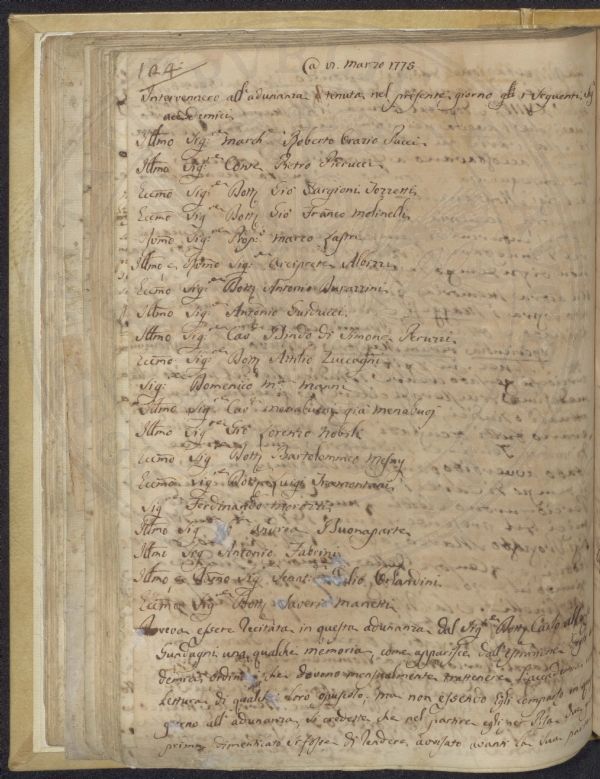 124
@ VI. Marzo 1775
Intervennero all'adunanza tenuta nel presente giorno gli seguenti
accademici
Illmo Sigre March. Roberto Orazio Pucci
Illmo Sigre Conte Pietro Pierucci
Eccmo Sigre Dottr Gio Targioni Tozzetti
Eccmo Sigre Dottr Gio Franco Molinelli
Sigre Propo Marco Lastri
Illmo e Sigre Arciprete Albizzi
Eccmo Sigre Dottr Antonio Durazzini
Illmo Sigre Antonio Guiducci
Illmo Sigre Cavr Bindo di Simone Peruzzi
Eccmo Sigre Dottr Attilio Zuccagni
Sigre Domenico Ma Manni
Illmo Sigre Cavr Menabuoi già Menabuoj
Illmo Sigre Gio Lorenzo Nobili
Eccmo Sigre Dottr Bartolommeo Mesny
Eccmo Sigre Dottre Luigi Tramontani
Sigre Ferdinando Morozzi
Illmo Sigre Andrea Buonaparte
Illmo Sigre Antonio Fabrini
Illmo e Sigre Senatr Giulio Orlandini
Eccmo Sigre Dottr Saverio Manetti
Doveva essere recitata in questa adunanza dal Sigre Dottr Carlo
Guadagni una qualche memoria, come apparisce dall'estrazione
ordini che devono mensualmente trattenere
lettura di qualche loro opuscolo. Ma non essendo egli comparso in
giorno all'adunanza, si credette che nel partire egli per Pisa
prima dimenticato si fosse di rendere avvisato avanti la sua